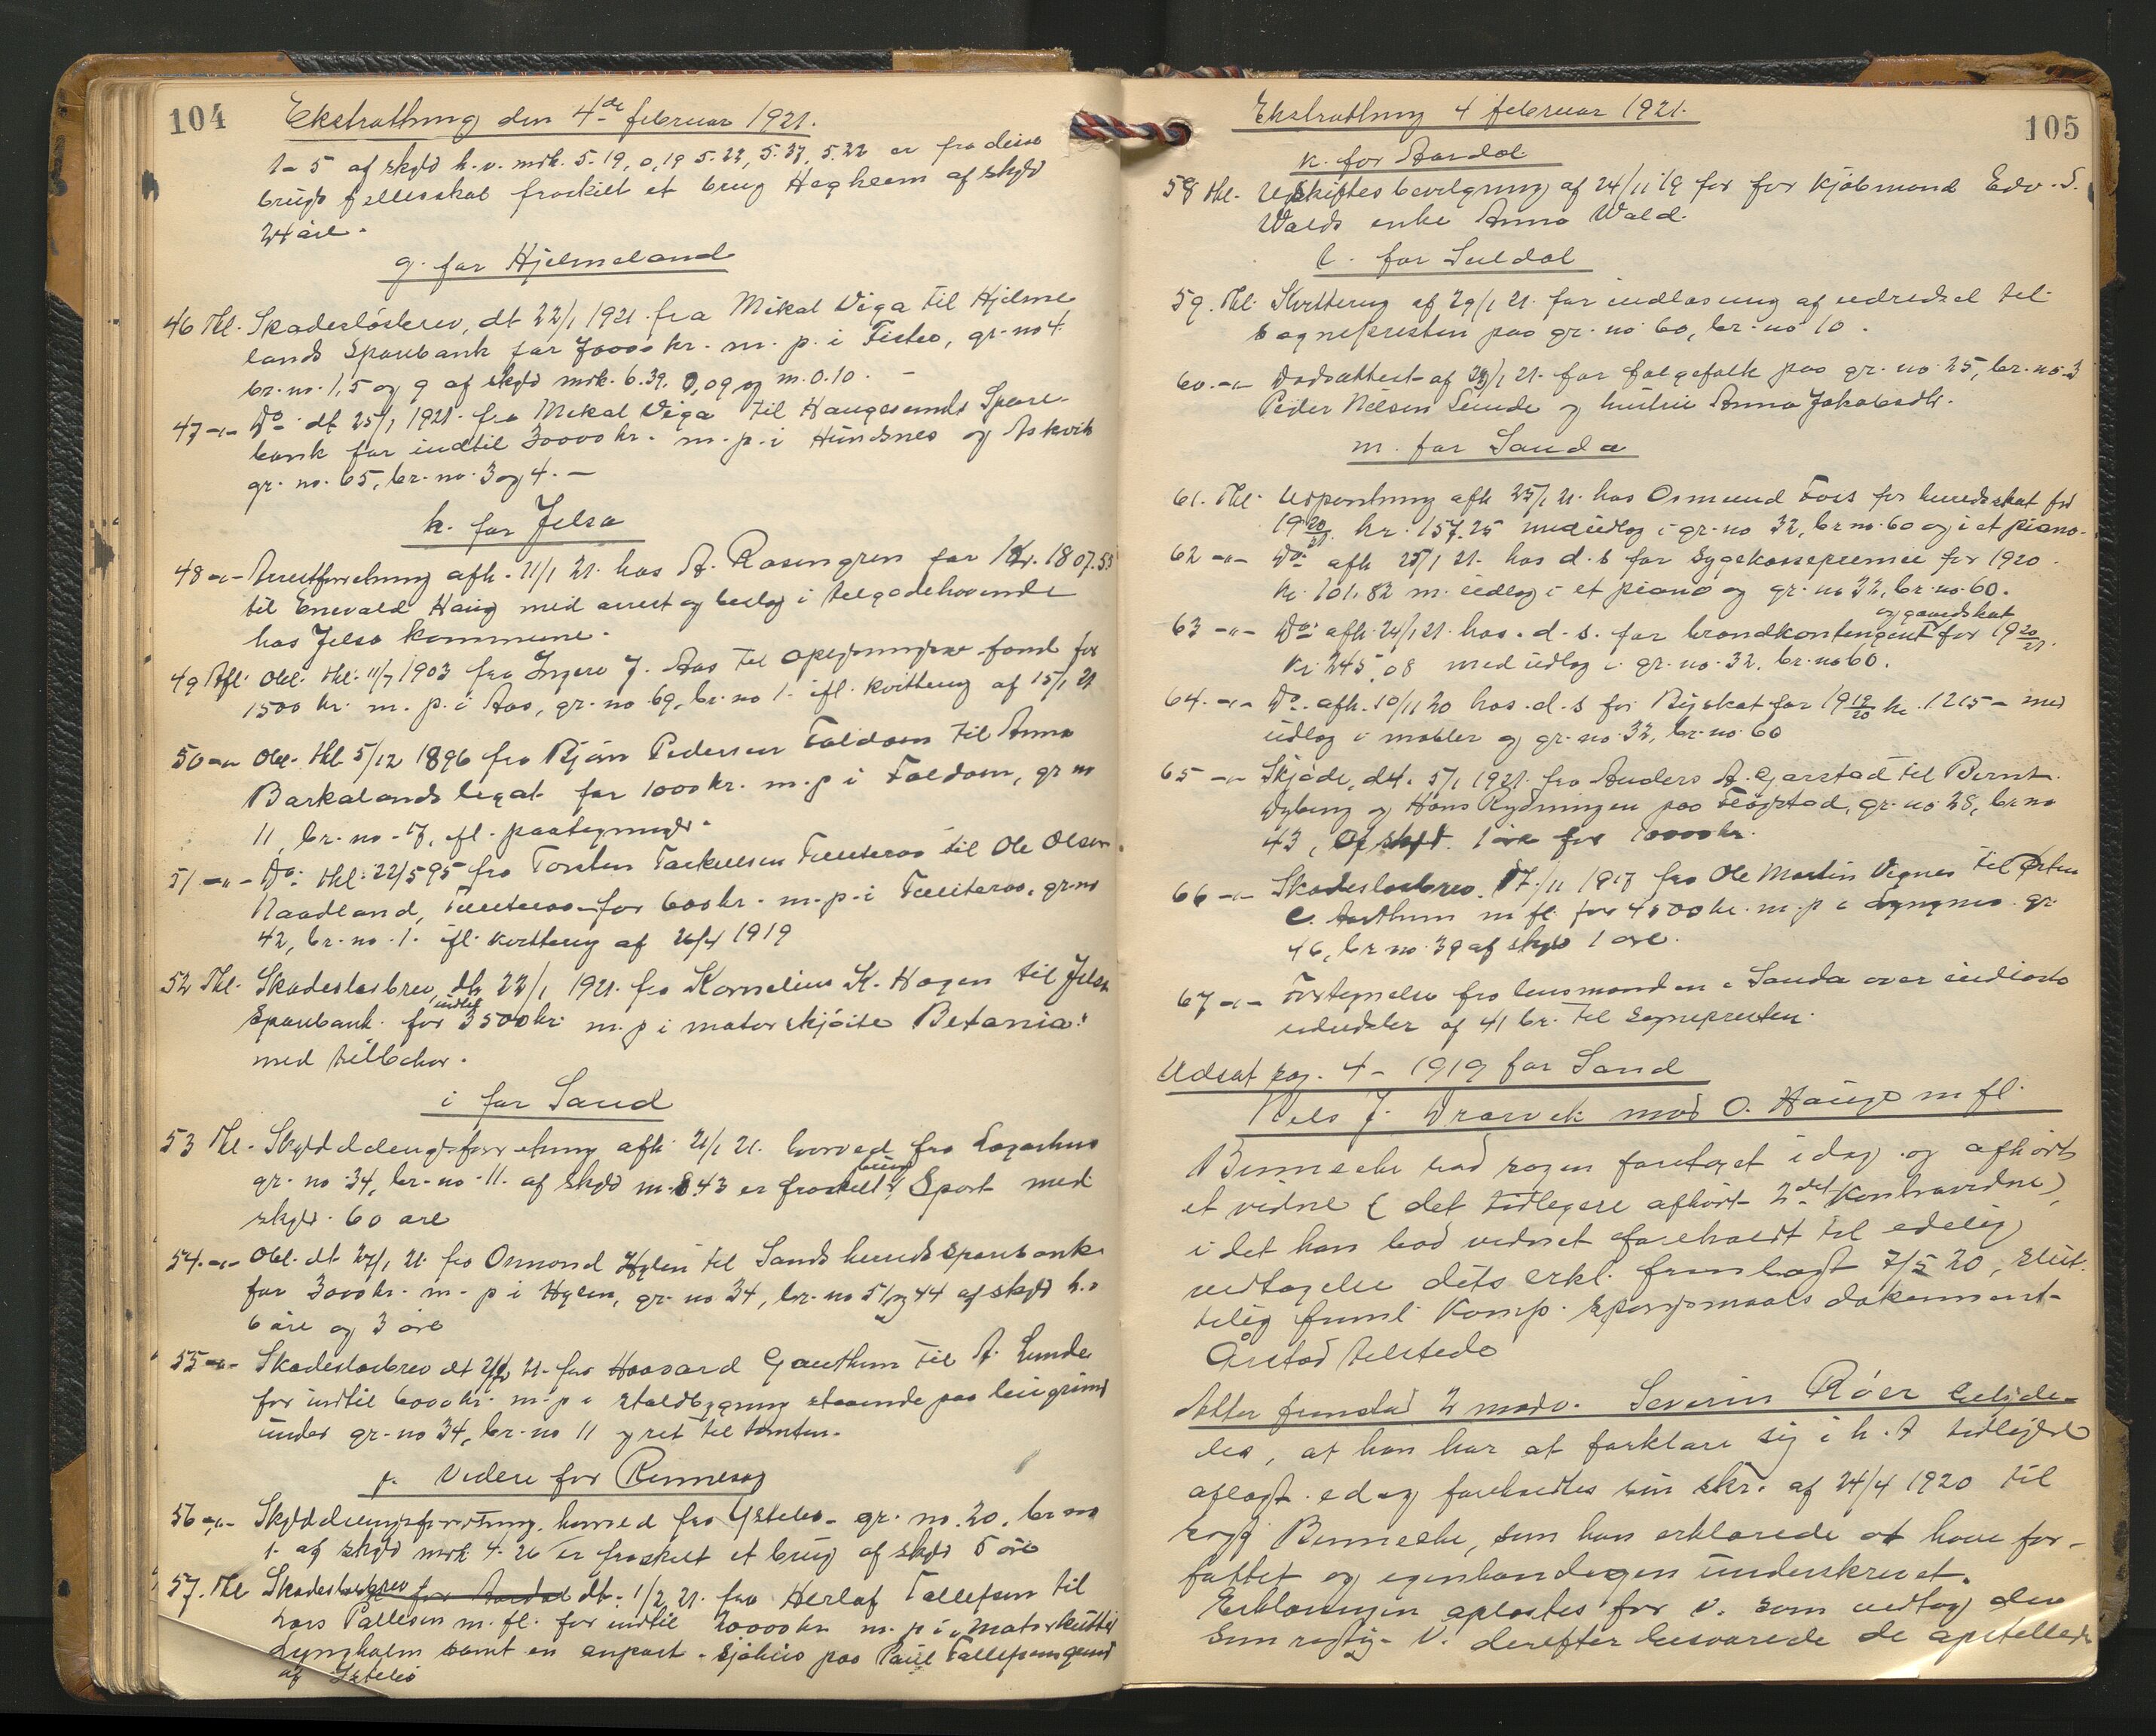 104
Ekstrathing den 4de februar 1921.
1-5 af skyld h.v. mrk. 5.19, 0,19 5.23, 5.37, 5.22 er fra disse
brugs fællesskab fraskilt et brug Hagheim af skyld
24 øre.
g. for Hjelmeland
46 Thl. Skadesløsbrev, dt 22/1 1921 fra Mikal Viga til Hjelme
lands Sparebank for 70000 kr. m. p. i Fisteo, gr. no 4
br. no. 1, 5 og 9 af skyld mrk. 6.39, 0,09 og m. 0.10. -
47 -"- Do dt 25/1 1921 fra Mikal Viga til Haugesunds Spare-
bank for indtil 30000 kr. m. p. i Hundsnes og Askvik
gr. no. 65, br. no. 3 og 4. -
h. for Jelsa
48 -"- Arrestforretning afh. 11/1 21. hos A. Rosengren for Kr. 1807.55
til Enevald Haug med arrest og beslag i tilgodehavende
hos Jelsa kommune.
49 Afl. Obl. thl. 11/7 1903 fra Ingere J. Aas til oplysnings-fond for
1500 kr. m. p. i Aas, gr. no. 69, br. no 1. ifl. kvittering af 15/1 21
50 -"- Obl. thl 5/12 1896 fra Bjørn Pedersen Foldøen til Anna
Barkalands legat for 1000 kr. m. p i Foldøen, gr no
11, br. no. 17, ifl. paategninger.
51 -"- Do thl. 22/5 95 fra Torsten Torkelsen til Ole Olsen
Naadland, for 600 kr. m. p. i gr. no
42, br. no. 1. ifl. kvittering af 26/4 1919
52 Thl. Skadesløsbrev, dt 22/1 1921. fra Kornelius K. Hagen til Jelsa
Sparebank for indtil 3500 kr. m. p i motorskjøite Betania
med tilbehør.
i for Sand
53 Thl. Skylddelingsforretning afh. 21/1 21. hvorved fra
gr. no. 34, br. no. 11. af skyld m. 8.43 er fraskilt brug Sport med
skyld 60 øre
54. -"- Obl. dt 27/1 21. fra Osmond Hylen til Sands herreds sparebank
for 3000 kr. m. p i Hylen, gr. no 34, br. no 51 og 44 af skyld h.v.
6 øre og 3 øre
55 -"- Skadesløsbrev dt 21. fra Haavard Gauthun til A. Lunde
for indtil 6000 kr. m. p i staldbygning staaende paa leiegrund
under gr. no 34, br. no 11 og ret til tomten.
f. Videre for Rennesøy
56 -"- Skylddelingsforretning, hvorved fra Ystebø gr. no. 20, br. no
1. af skyld mrk 4.26 er fraskilt et brug af skyld 5 øre
57. Thl Skadesløsbrev for Aardal dt. 1/2 21. fra Herlof Tallefsen til
Lars Pallesen m. fl. for indtil 20000 kr m. p i motorkutter
Lyngholm samt en anpart i sjøhus paa Paul Tallefsens grund
af Ystebø
105
Ekstrathing 4 februar 1921.
k. for Aardal
58 Thl. Uskiftesbevilgning af 24/11 19 for for Kjøbmand Edv. S.
Walds enke Anna Wald.
l. for Suldal
59. Thl. Kvittering af 29/1 21. for indløsning af utredsel til
sognepresten paa gr. no 60, br. no 10.
60. -"- Dødsattest af 29/1 21. for folgefolk paa gr. no. 25, br. no. 3
Peder Nelsen Lunde og hustru Anna Jakobsdtr.
m. for Sauda
61. Thl. Udpantning afh 25/1 21. hos Osmund Foss for herredsskat for
1920/21. kr. 157.25 med udlæg i gr. no 32, br no. 60 og i et piano.
62 -"- Do afh 25/1 21. hos d. s for Sygekassepremie for 1920.
Kr. 101.82 m. udlæg i et piano og gr. no 32, br. no. 60.
63 -"- Do afh. 24/1 21. hos. d. s. for brandkontingent og herredsskat for 1920/21.
Kr. 245.08 med udlæg i gr. no. 32, br. no 60.
64. -"- Do. afh. 10/11 20 hos. d. s for Byskat for 1919/20 kr. 1215 - med
udlæg i møbler og gr. no. 32, br. no. 60
65 -"- Skjøde, dt. 5/1 1921. fra Anders A. Gjerstad til Bernt.
Dybing og Hans Rydningen paa Fløgstad, gr. no. 28, br no
43, af skyld 1 øre for 10000 kr.
66 -"- Skadesløsbrev. 17/11 1917 fra Ole Martin Vignes til Østen
E. Aarthun m fl. for 4500 kr. m. p i gr.
46, br no. 39 af skyld 1 øre.
67 -"- Fortegnelse fra lensmanden i Sauda over indløste
utredsler af 41 br. til Sognepresten.
Udsat sag. 4 - 1919 for Sand
Nels J. Drarvik mod O. Hauge m fl.
Bennecke bad sagen foretaget idag og afhørt
et vidne (det tidligere afhørt 2det Kontravidne),
i det han bad vidnet foreholdt til edelig
vedtagelse dets erkl. fremlagt 7/5 20, slut.
telig freml. Komp. spørsmaals dokument
Årstad tilstede
Atter fremstod 2 modv. Severin Røer betyde-
des, at han har at forklare sig i h. t tidligere
aflagt ed og foreholdtes sin skr. af 24/4 1920 til
sagf Bennecke, som han erklærede at have for-
fattet og egenhændigen underskrevet.
Erklæringen oplæstes for v. som vedtog den
som rigtig. V. derefter besvarede de opstillede